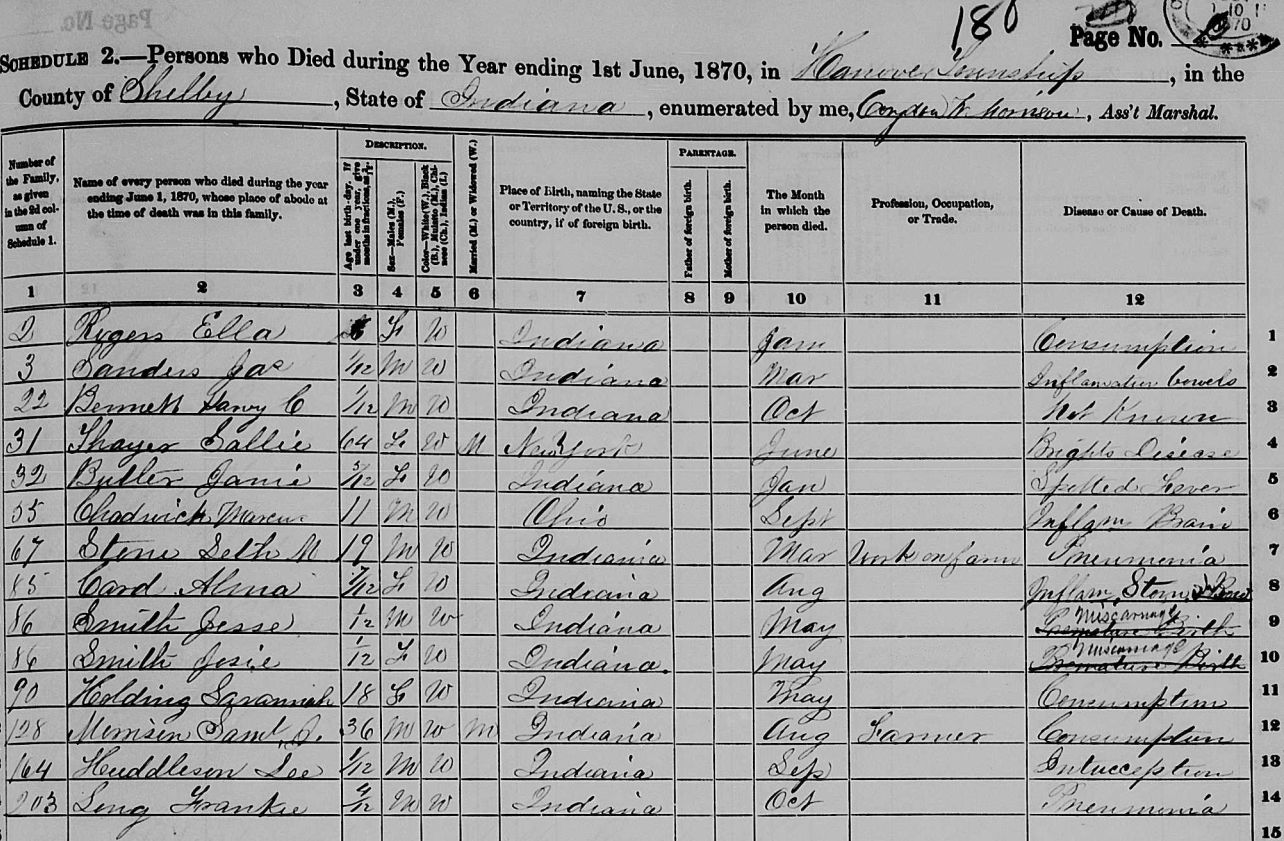 Page No.
18
Page No.
SCHEDULE 2.—Persons who Died during the Year ending 1st June, 1870, in Hanover Township, in the
County of Shelby, State of Indiana, enumerated by me, Morrison, Ass't Marshal.
Number of the Family, as given in the 2d column of Schedule 1.
Name of every person who died during the year ending June 1, 1870, whose place of abode at the time of death was in this family.
DESCRIPTION.
Age last birth-day. If under one year, give months in fractions,
Sex—Males (M.), Females (F.)
Color—White (W.), Black (B.), Mulatto (M.), Chinese (Ch.), Indian (I.)
Married (M.) or Widowed (W.)
Place of Birth, naming the State or Territory of the U. S., or the country, if of foreign birth.
PARENTAGE.
Father of foreign birth.
Mother of foreign birth.
The Month in which the person died.
Profession, Occupation, or Trade.
Disease or Cause of Death.
1 2 3 4 5 6 7 8 9 10 11 12
2 Rogers Ella F W Indiana Jan Consumption 1
3 Sanders Jas 1/12 M W Indiana Mar Inflamation bowels 2
22 Bennett C 1/12 M W Indiana Oct Not Known 3
31 Thayer Sallie 64 F W M New York June Brights Disease 4
32 Butler Janie 3/12 F W Indiana Jan Spotted Fever 5
55 Chadwick Marcus 11 M W Ohio Sept Inflam Brain 6
67 Stone Seth M 19 M W Indiana Mar Work on farm Pneumonia 7
85 Card Alma 7/12 F W Indiana Aug Inflam Stom & 8
86 Smith Jesse 1/2 M W Indiana May Premature Birth Miscarriage 9
86 Smith Josie 1/12 F W Indiana. May Premature Birth Miscarriage 10
90 Holding Savannah 18 F W Indiana May Consumption 11
128 Morrison Saml 36 M W M Indiana Aug Farmer Consumption 12
164 Huddleson 1/12 M W Indiana Sep Intucception 13
203 Long Frankie 4/12 M W Indiana Oct Pneumonia 14
15